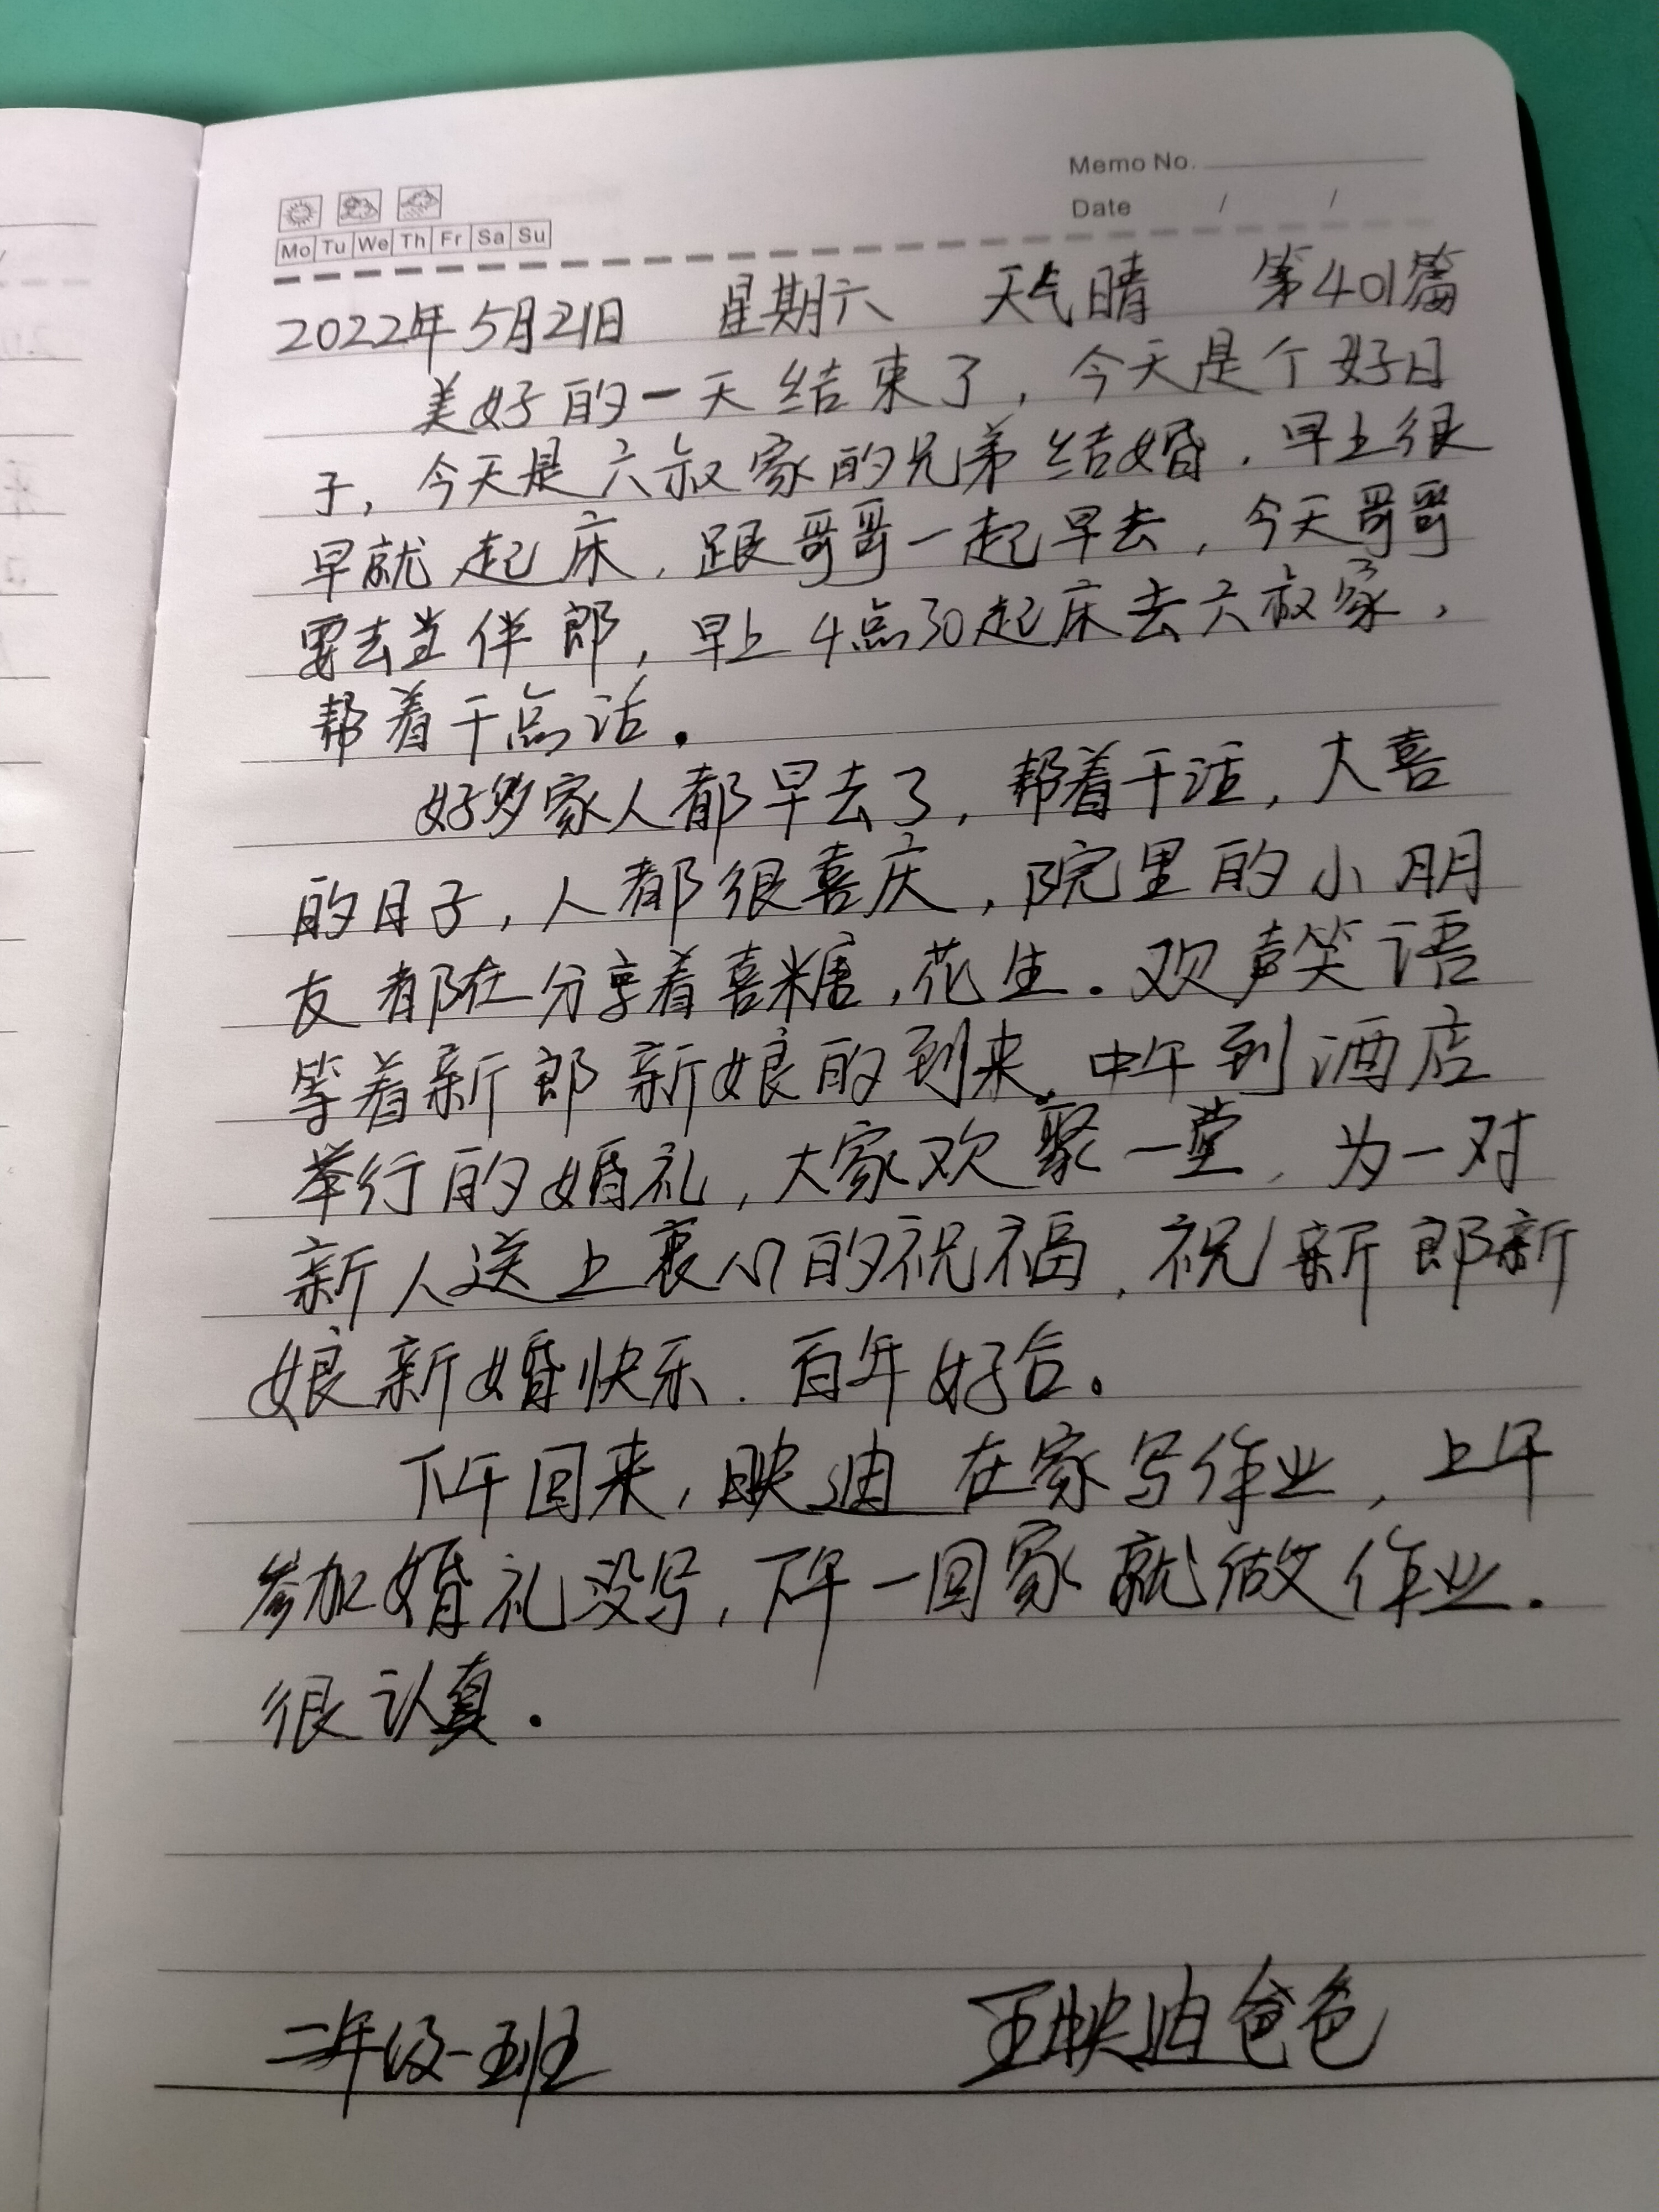 Memo No.
Date / /
Mo Tu We Th Fr Sa Su
2022年5月21日 星期六 天气晴 第401篇
美好的一天结束了,今天是个好日
子,今天是六叔家的兄弟结婚.早上很
早就起床,跟哥哥一起早去,今天哥哥
要去当伴郎,早上4点30起床去六叔家,
帮着干点活.
好多家人都早去了,帮着干活,大喜
的日子,人都很喜庆,院里的小朋
友都在分享着喜糖,花生.欢声笑语
等着新郎新娘的到来.中午到酒店
举行的婚礼,大家欢聚一堂,为一对
新人送上衷心的祝福,祝新郎新
娘新婚快乐.百年好合.
下午回来,映迪在家写作业,上午
参加婚礼没写,下午一回家就做作业.
很认真.
二年级一班 王映迪爸爸